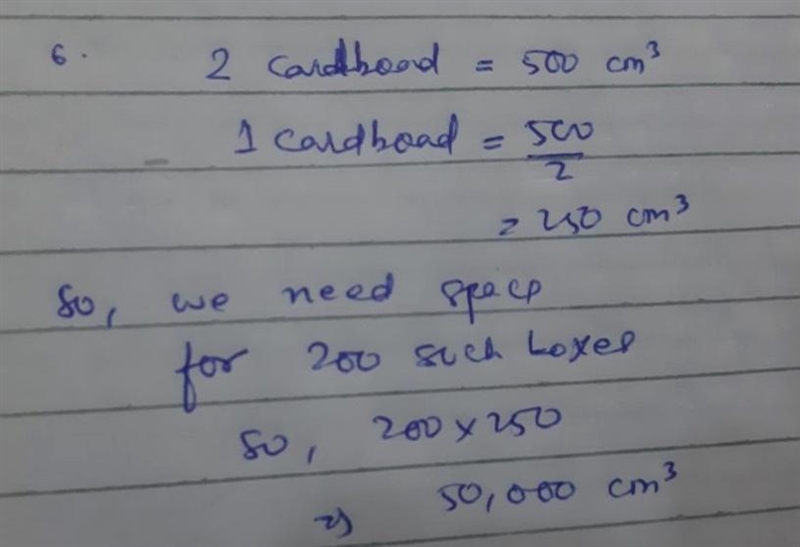 6. 2 Cardboad = 500 cm³
1 Cardboad = 500/2
= 250 cm³
So, we need space
for 200 such boxes
So, 200 x 250
=) 50,000 cm³